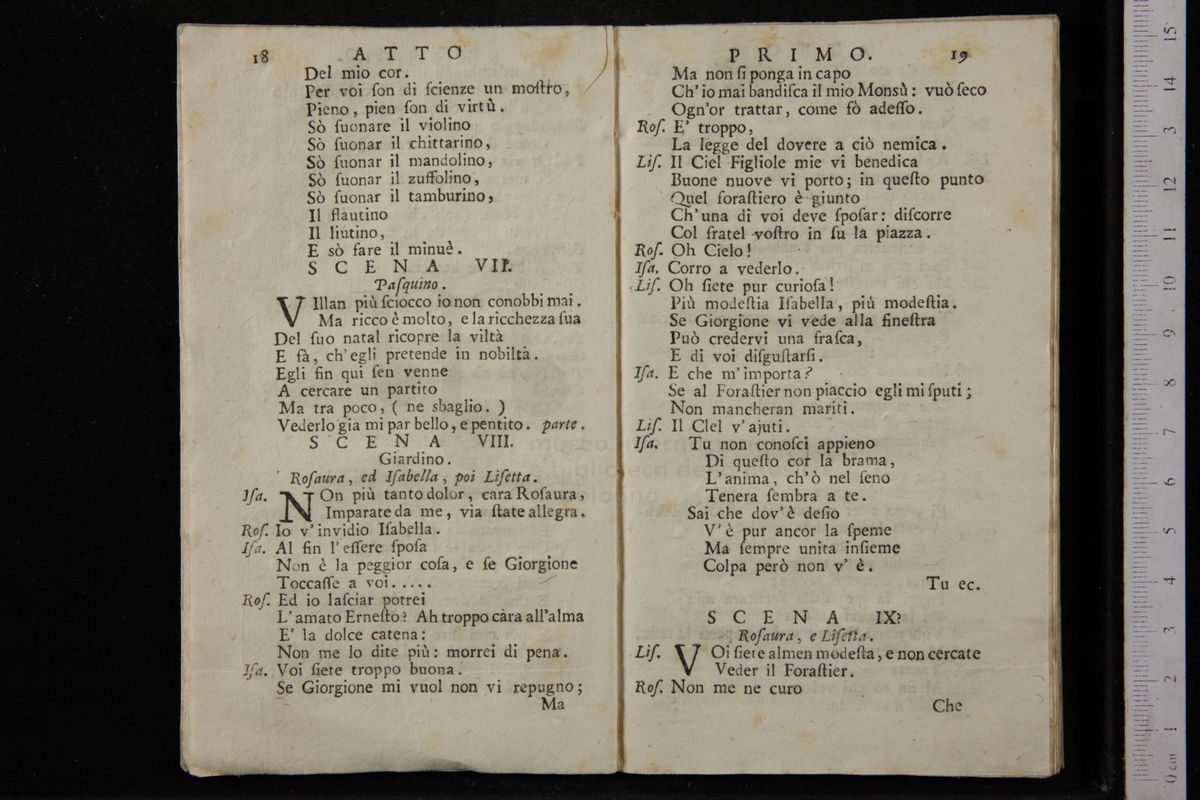 18 ATTO
Del mio cor.
Per voi ſon di ſcienze un moſtro,
Pieno, pien ſon di virtù.
Sò ſuonare il violino
Sò ſuonar il chittarino,
Sò ſuonar il mandolino,
Sò ſuonar il zuffolino,
Sò ſuonar il tamburino,
Il flautino
Il liutino,
E sò fare il minuè.
SCENA VII.
Paſquino.
VIllan più ſciocco io non conobbi mai.
Ma ricco è molto, e la ricchezza ſua
Del ſuo natal ricopre la viltà
E fà, ch'egli pretende in nobiltà.
Egli fin qui ſen venne
A cercare un partito
Ma tra poco, ( ne sbaglio. )
Vederlo gia mi par bello, e pentito. parte.
SCENA VIII.
Giardino.
Roſaura, ed Iſabella, poi Liſetta.
Iſa. NOn più tanto dolor, cara Roſaura,
Imparate da me, via ſtate allegra.
Roſ. Io v'invidio Iſabella.
Iſa. Al fin l'eſſere ſpoſa
Non è la peggior coſa, e ſe Giorgione
Toccaſſe a voi.....
Roſ. Ed io laſciar potrei
L'amato Erneſto? Ah troppo càra all'alma
E' la dolce catena:
Non me lo dite più: morrei di pena.
Iſa. Voi ſiete troppo buona.
Se Giorgione mi vuol non vi repugno;
Ma
PRIMO. 19
Ma non ſi ponga in capo
Ch'io mai bandiſca il mio Monsù: vuò ſeco
Ogn'or trattar, come fò adeſſo.
Roſ. E' troppo,
La legge del dovere a ciò nemica.
Liſ. Il Ciel Figliole mie vi benedica
Buone nuove vi porto; in queſto punto
Quel foraſtiero è giunto
Ch'una di voi deve ſpoſar: diſcorre
Col fratel voſtro in ſu la piazza.
Roſ. Oh Cielo!
Iſa. Corro a vederlo.
Liſ. Oh ſiete pur curioſa!
Più modeſtia Iſabella, più modeſtia.
Se Giorgione vi vede alla fineſtra
Può credervi una fraſca,
E di voi diſguſtarſi.
Iſa. E che m'importa?
Se al Foraſtier non piaccio egli mi ſputi;
Non mancheran mariti.
Liſ. Il Clel v'ajuti.
Iſa. Tu non conoſci appieno
Di queſto cor la brama,
L'anima, ch'ò nel ſeno
Tenera ſembra a te.
Sai che dov'è deſio
V'è pur ancor la ſpeme
Ma ſempre unita inſieme
Colpa però non v'è.
Tu ec.
SCENA IX.
Roſaura, e Liſetta.
Liſ. VOi ſiete almen modeſta, e non cercate
Veder il Foraſtier.
Roſ. Non me ne curo
Che